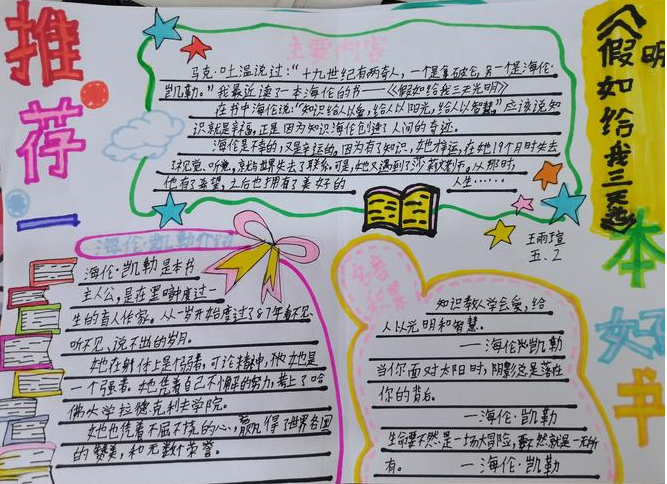 推
荐
一
本
好
书
《假如给我三天光
明
主要内容
马克·吐温说过：“十九世纪有两奇人，一个是拿破仑，另一个是海伦·
凯勒。”我最近读了一本海伦的书——《假如给我三天光明》
在书中海伦说：“知识给人以爱，给人以阳光，给人以智慧。”应该说知
识就是幸福，正是因为知识海伦创造了人间的奇迹。
海伦是不幸的，又是幸运的，因为有了知识，她不幸运，在她19个月时失去
了视觉、听觉，就与世界失去了联系。可是，她又遇到了莎莉文老师。从那时，
他有了希望，之后也拥有了美好的 人生……
王雨瑄
五、2
海伦·凯勒介绍
海伦·凯勒是本书
主人公，是在黑暗中度过一
生的盲人作家。从一岁开始度过了87年看不见、
听不见、说不出的岁月。
她在身体上是弱者，可论精神，她是
一个强者。她凭着自己不懈的努力，考上了哈
佛大学拉德克利夫学院。
她也凭着不屈不挠的心，赢得了世界各国
的赞美，和无数个荣誉。
名言
积累
知识教人学会爱，给
人以光明和智慧。
——海伦·凯勒
当你面对太阳时，阴影总是落在
你的背后。
——海伦·凯勒
生命要不然是一场大冒险，要不然就是一无所
有。 ——海伦·凯勒